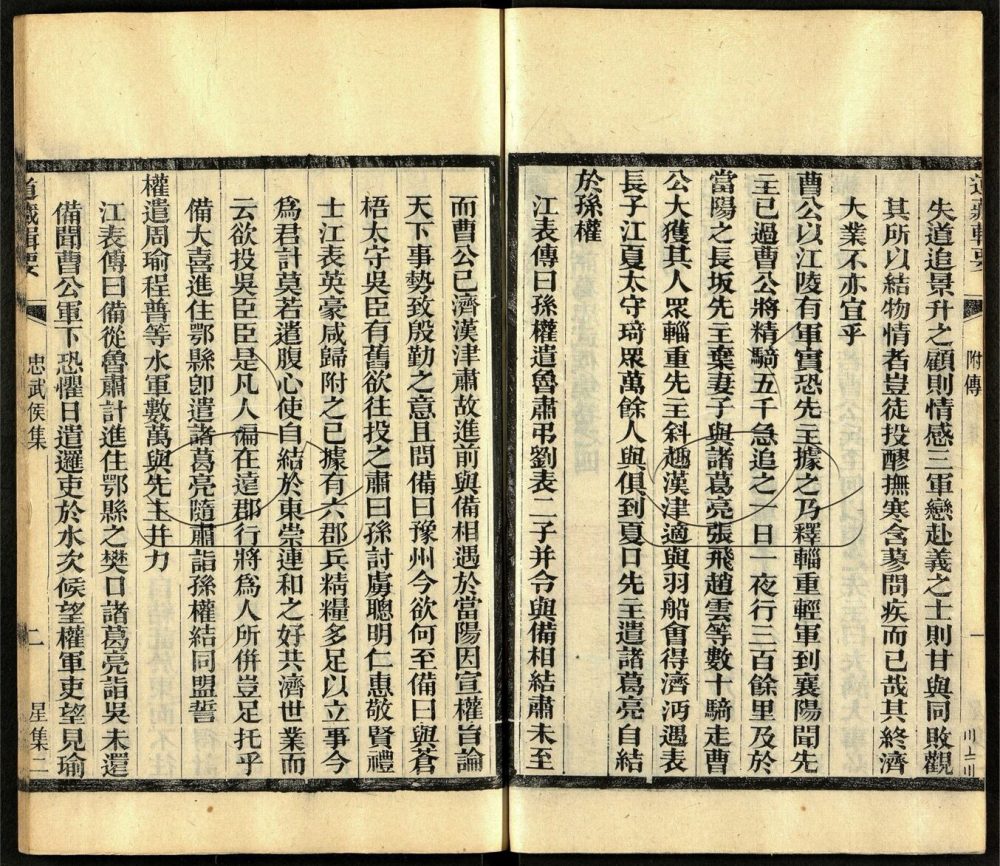 道藏輯要
附傳
一
失道追景升之顧則情感三軍戀赴義之士則甘與同敗觀
其所以結物情者豈徒投醪撫寒含蓼問疾而已哉其終濟
大業不亦宜乎
曹公以江陵有軍實恐先主據之乃釋輜重輕軍到襄陽聞先
主已過曹公將精騎五千急追之一日一夜行三百餘里及於
當陽之長坂先主棄妻子與諸葛亮張飛趙雲等數十騎走曹
公大獲其人眾輜重先主斜趨漢津適與羽船會得濟沔遇表
長子江夏太守琦眾萬餘人與俱到夏口先主遣諸葛亮自結
於孫權
江表傳曰孫權遣魯肅弔劉表二子并令與備相結肅未至
而曹公已濟漢津肅故進前與備相遇於當陽因宣權旨論
天下事勢致殷勤之意且問備曰豫州今欲何至備曰與蒼
梧太守吳臣有舊欲往投之肅曰孫討虜聰明仁惠敬賢禮
士江表英豪咸歸附之已據有六郡兵精糧多足以立事今
爲君計莫若遣腹心使自結於東崇連和之好共濟世業而
云欲投吳臣臣是凡人偏在遠郡行將爲人所併豈足托乎
備大喜進住鄂縣卽遣諸葛亮隨肅詣孫權結同盟誓
權遣周瑜程普等水軍數萬與先主并力
江表傳曰備從魯肅計進住鄂縣之樊口諸葛亮詣吳未還
備聞曹公軍下恐懼日遣邏吏於水次候望權軍吏望見瑜
道藏輯要
忠武侯集
二
星集二